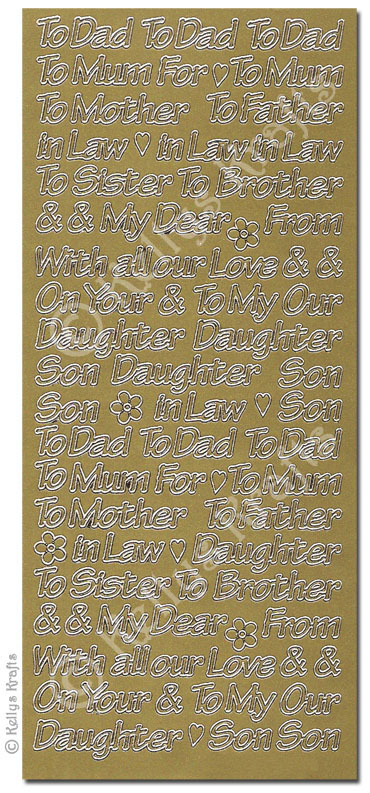 To Dad To Dad To Dad
To Mum For To Mum
To Mother To Father
in Law in Law in Law
To Sister To Brother
& & My Dear From
With all our Love & &
On Your & To My Our
Daughter Daughter
Son Daughter Son
Son in Law Son
To Dad To Dad To Dad
To Mum For To Mum
To Mother To Father
in Law Daughter
To Sister To Brother
& & My Dear From
With all our Love & &
On Your & To My Our
Daughter Son Son
© Kellys Krafts
© Kellys Krafts
© Kellys Krafts